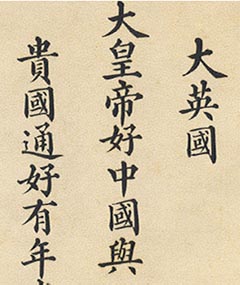 大英國
大皇帝好中國與
貴國通好有年